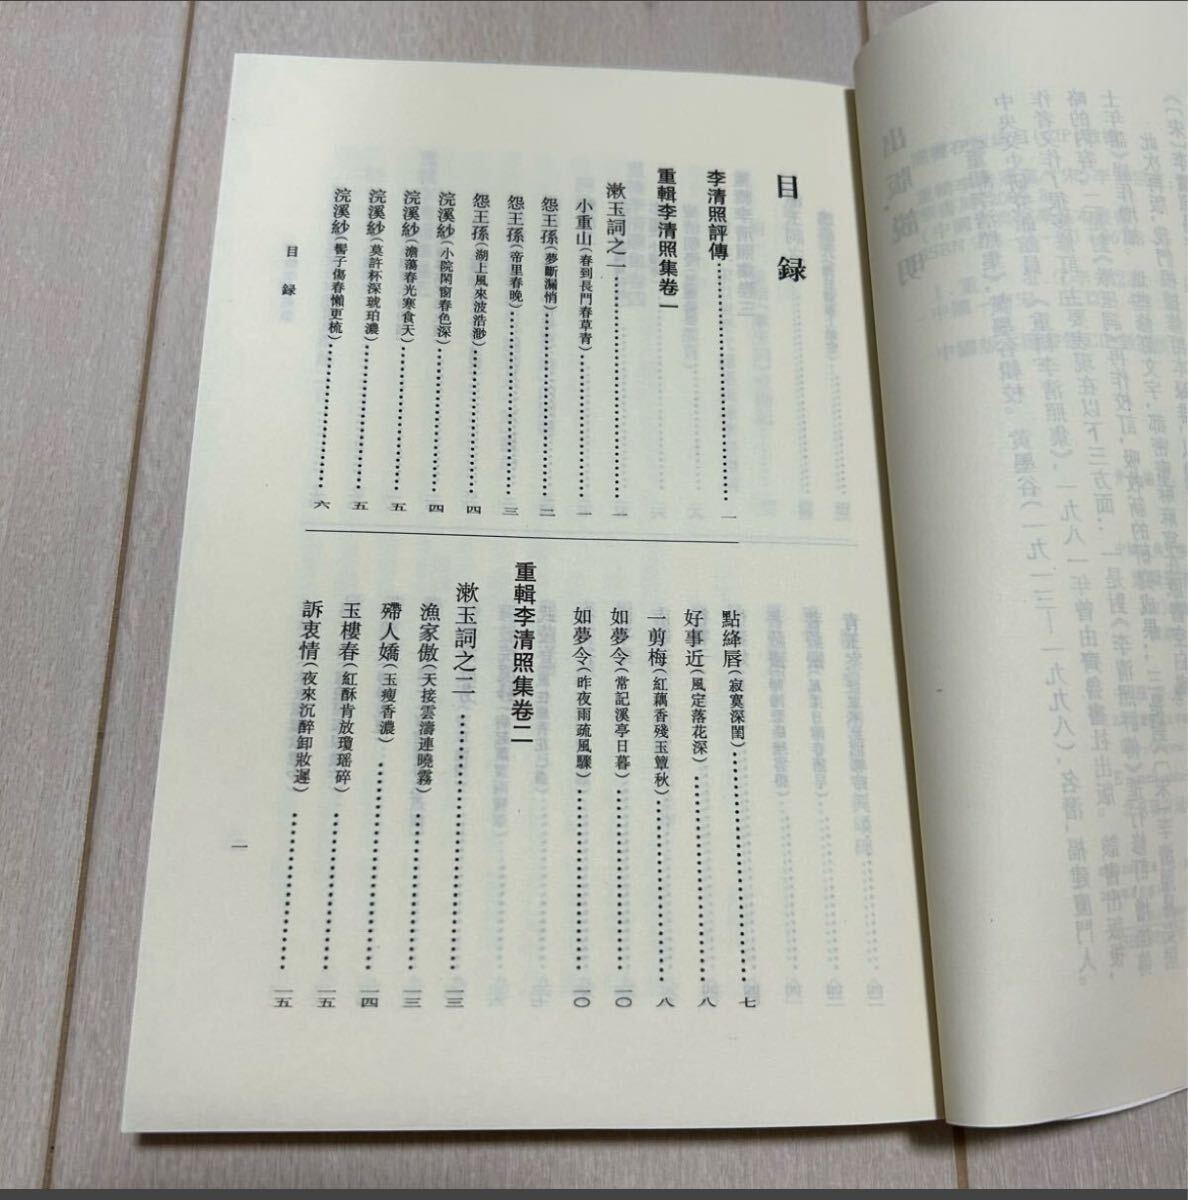 目録
李清照評傳……一
重輯李清照集卷一
漱玉詞之一……一
小重山（春到長門春草青）……一
怨王孫（夢斷漏悄）……二
怨王孫（帝里春晚）……三
怨王孫（湖上風來波浩渺）……四
浣溪紗（小院閑窗春色深）……四
浣溪紗（澹蕩春光寒食天）……五
浣溪紗（莫許杯深琥珀濃）……五
浣溪紗（髻子傷春懶更梳）……六
點絳唇（寂寞深閨）……七
好事近（風定落花深）……八
一剪梅（紅藕香殘玉簟秋）……八
如夢令（常記溪亭日暮）……一〇
如夢令（昨夜雨疏風驟）……一〇
重輯李清照集卷二
漱玉詞之二……一三
漁家傲（天接雲濤連曉霧）……一三
殢人嬌（玉瘦香濃）……一四
玉樓春（紅酥肯放瓊瑶碎）……一五
訴衷情（夜來沉醉卸妝遲）……一五
目録
一